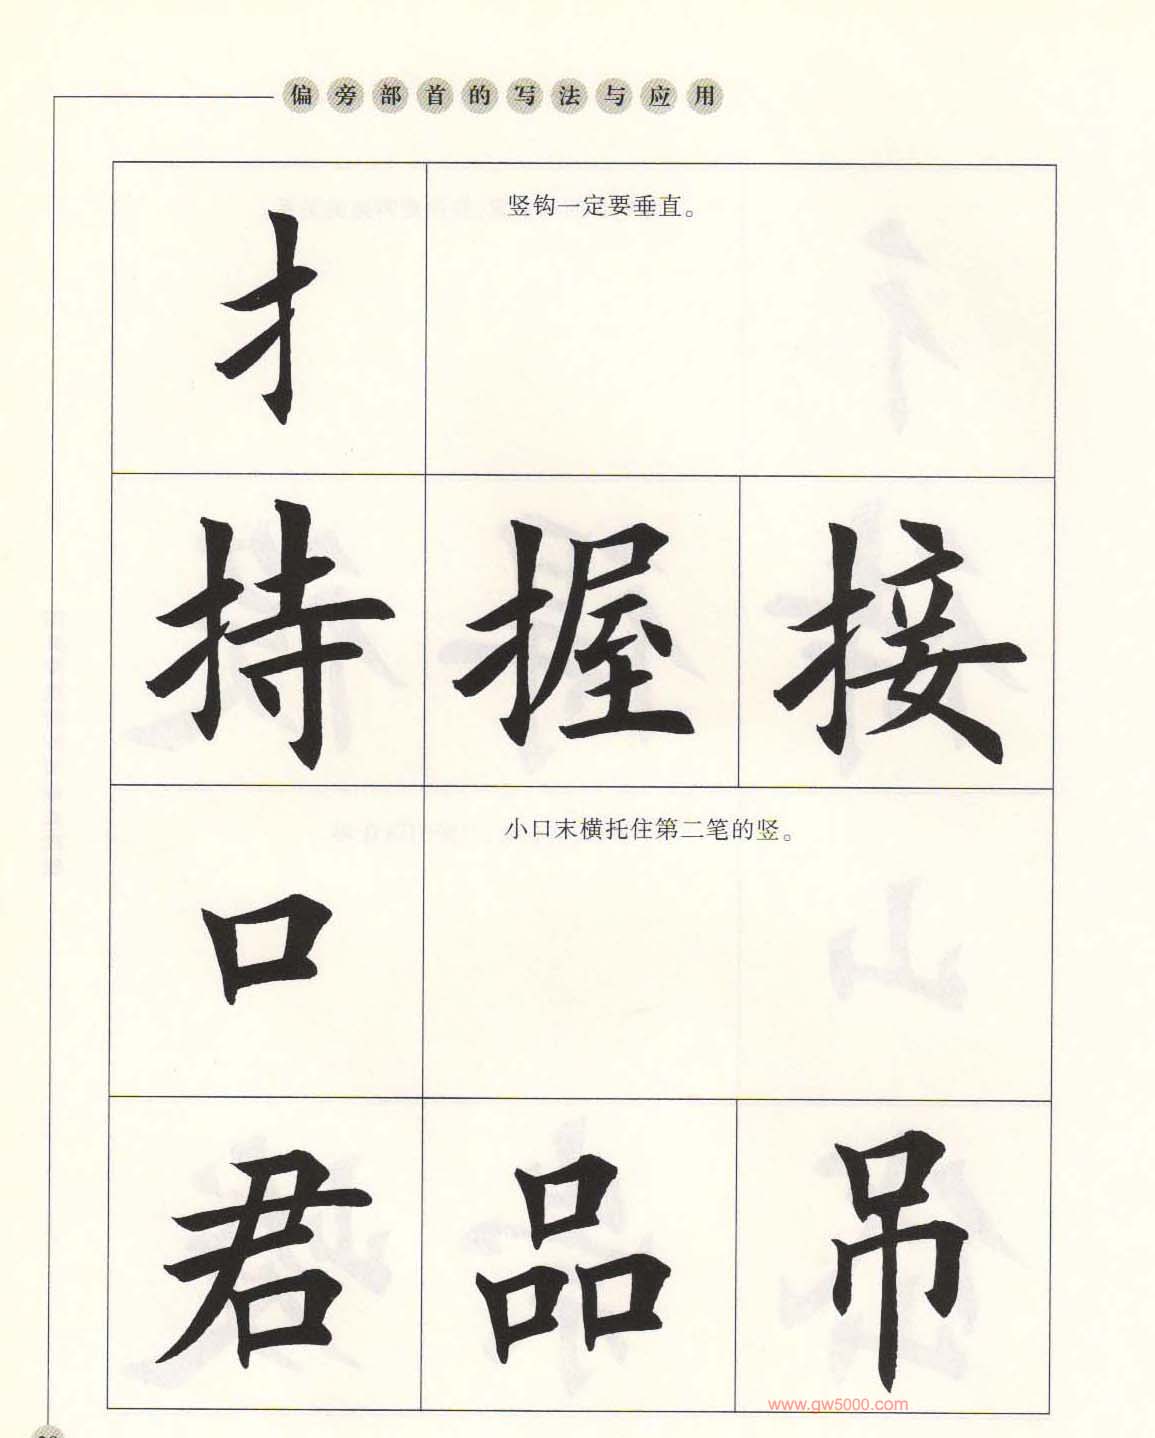 偏旁部首的写法与应用
扌
竖钩一定要垂直。
持握接
口
小口末横托住第二笔的竖。
君品吊
www.gw5000.com